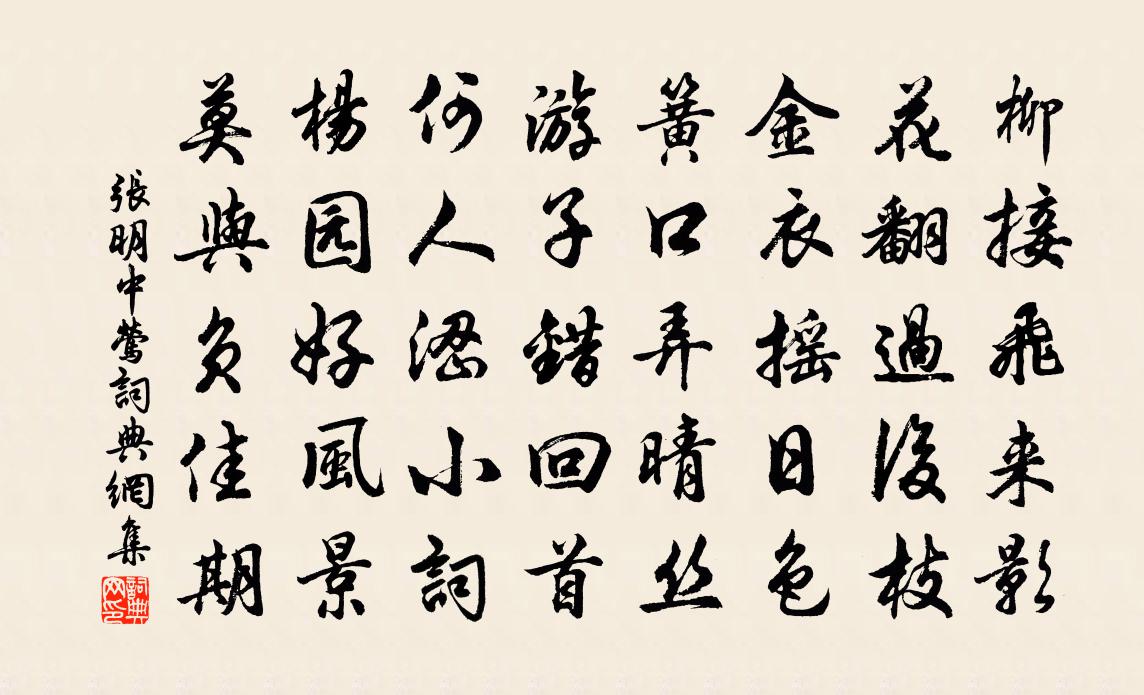 柳接飛来影
花翻過後枝
金衣摇日色
簧口弄晴丝
游子錯回首
何人澀小詞
楊园好風景
莫與負佳期
張明中鶯詞典網集
詞典网印